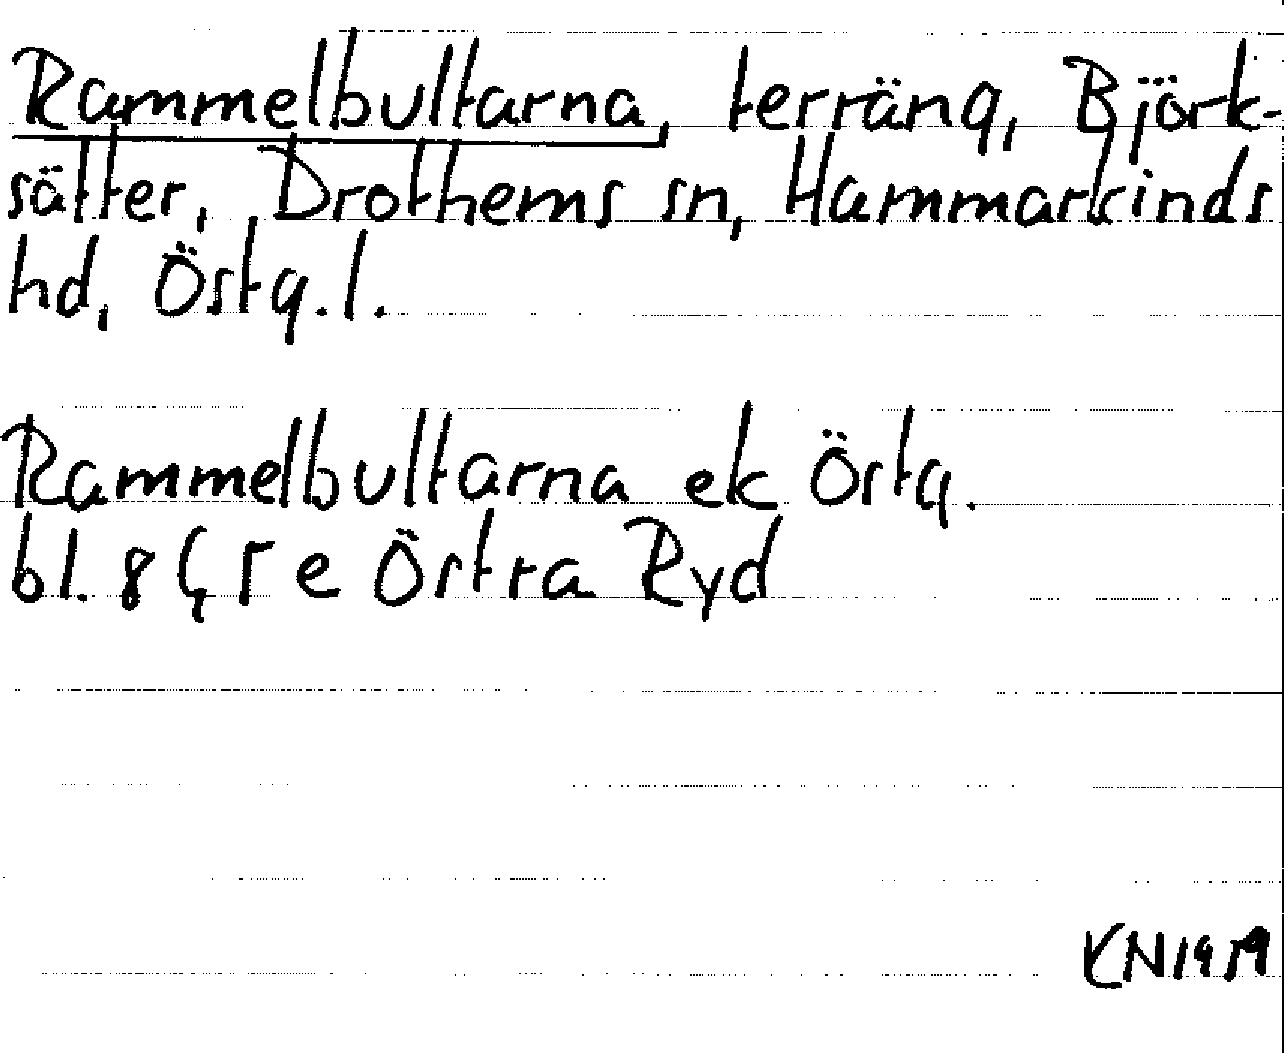 Rammelbultarna, terräng, Björk-
sätter, Drothems sn, Hammarkinds
hd, Östg. l.
Rammelbultarna ek Östg.
bl. 8G 5e Östra Ryd
KN 1979